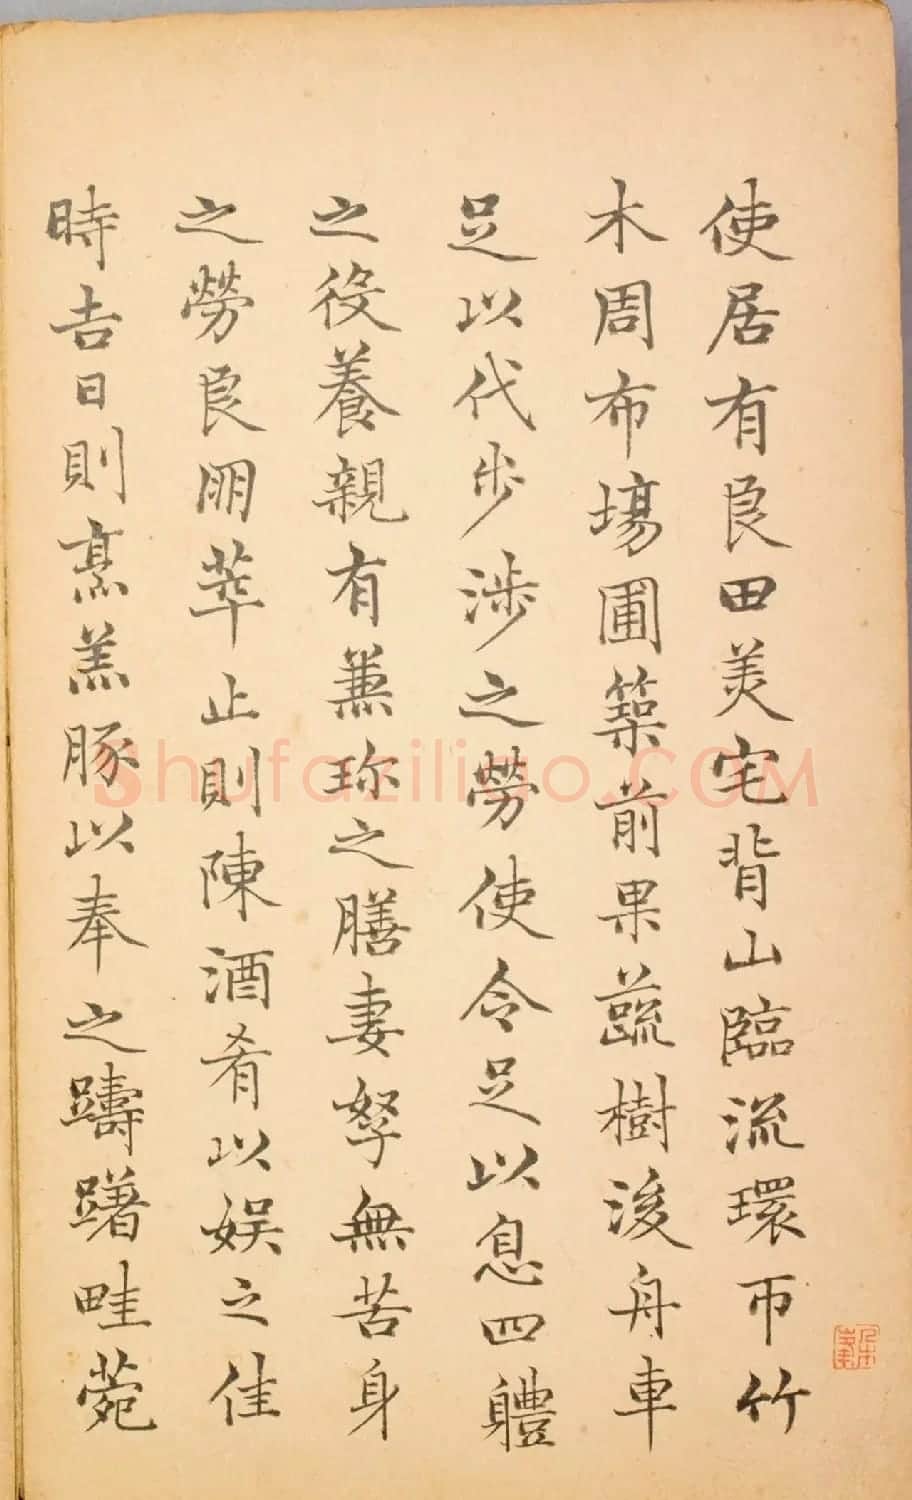 使居有良田美宅背山臨流環帀竹
木周布塲圃築前果蔬樹後舟車
足以代步涉之勞使令足以息四軆
之役養親有兼珍之膳妻孥無苦身
之勞良朋萃止則陳酒肴以娛之佳
時吉日則烹羔豚以奉之躊躇畦菀
Shufaziliao.COM